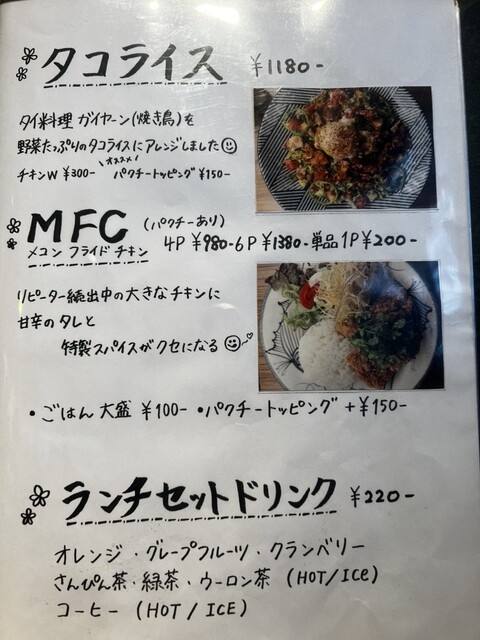 タコライス ¥1180-
タイ料理 ガイヤーン(焼き鳥)を
野菜たっぷりのタコライスにアレンジしました
オススメ
チキンW ¥300- パクチートッピング ¥150-
MFC (パクチーあり)
メコン フライド チキン 4P ¥980- 6P ¥1380- 単品1P ¥200-
リピーター続出中の大きなチキンに
甘辛のタレと
特製スパイスがクセになる
・ごはん 大盛 ¥100- ・パクチートッピング +¥150-
ランチセットドリンク ¥220-
オレンジ・グレープフルーツ・クランベリー
さんぴん茶・緑茶・ウーロン茶 (HOT/ICE)
コーヒー (HOT / ICE)